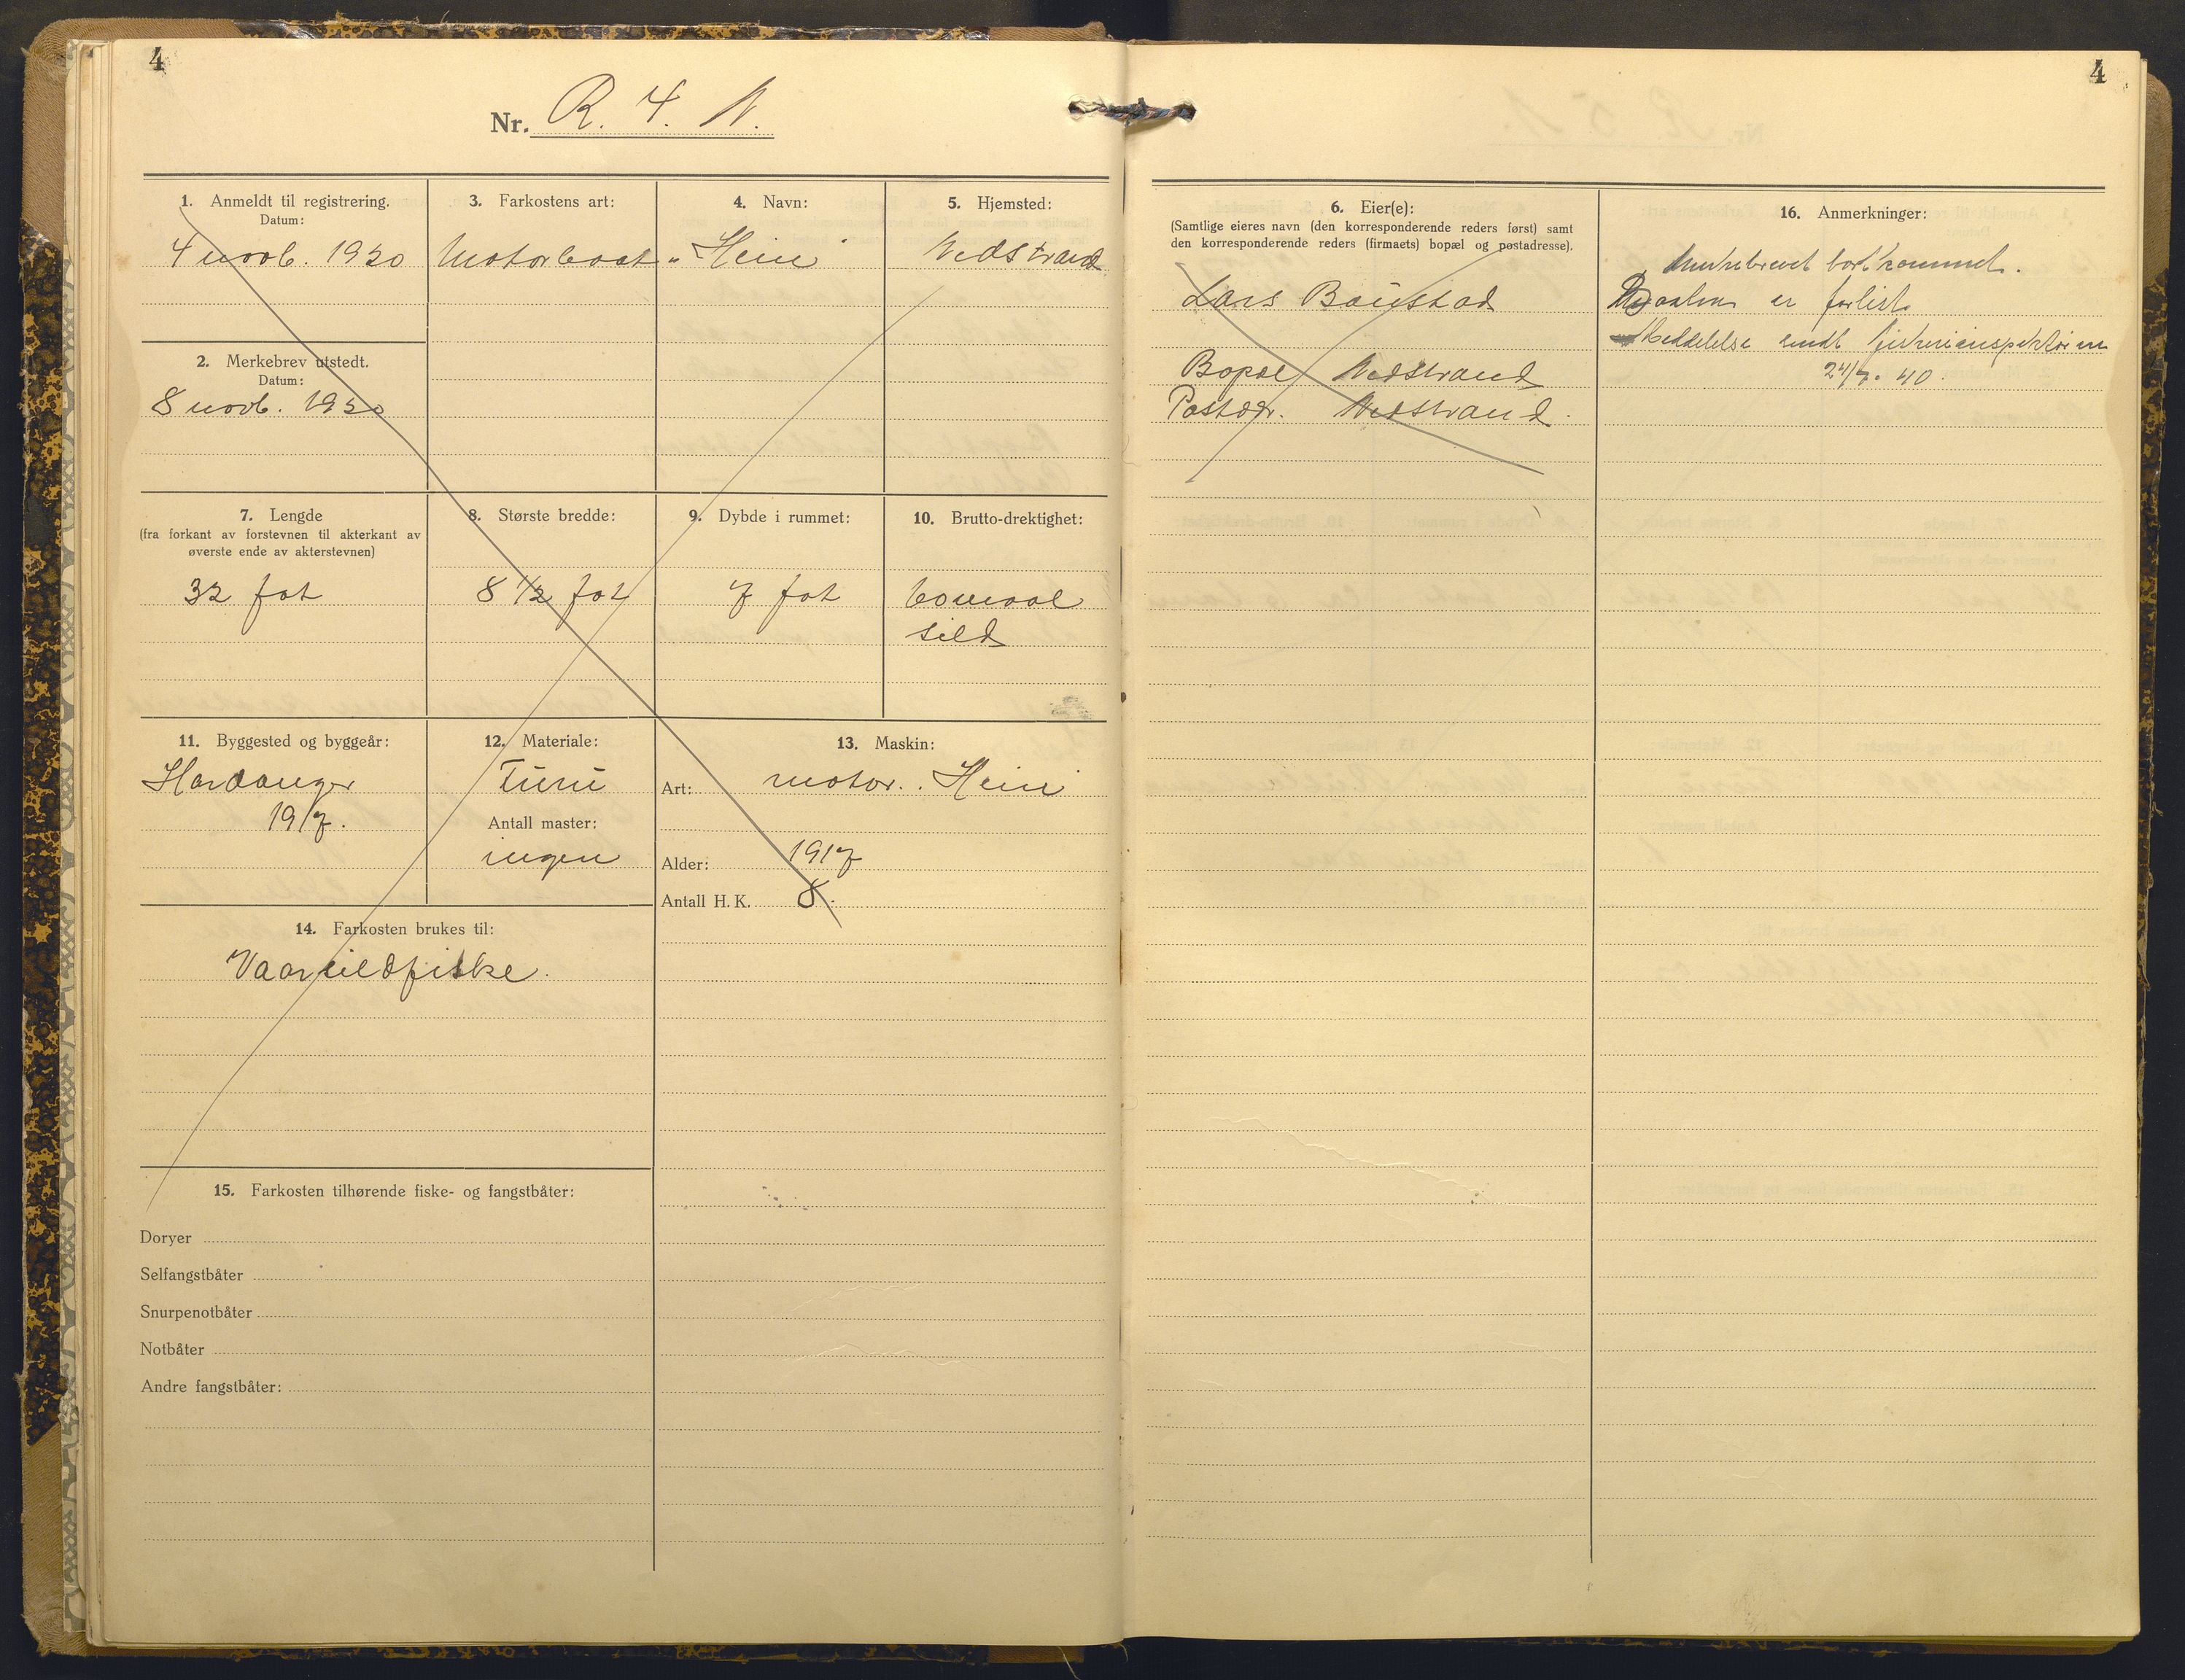 4
Nr. R. 4. N.
1. Anmeldt til registrering.
Datum:
4 novb. 1920
2. Merkebrev utstedt.
Datum:
8 novb. 1920
3. Farkostens art:
Motorbaat
4. Navn:
„Hein"
5. Hjemsted:
Nedstrand
7. Lengde
(fra forkant av forstevnen til akterkant av
øverste ende av akterstevnen)
32 fot
8. Største bredde:
8 1/2 fot
9. Dybde i rummet:
7 fot
10. Brutto-drektighet:
60 maal
sild
11. Byggested og byggeår:
Hardanger
1917.
12. Materiale:
Furu
Antall master:
ingen
13. Maskin:
Art: motor. Hein
Alder: 1917
Antall H. K. 8.
14. Farkosten brukes til:
Vaarsildfiske.
15. Farkosten tilhørende fiske- og fangstbåter:
Doryer
Selfangstbåter
Snurpenotbåter
Notbåter
Andre fangstbåter:
4
6. Eier(e):
(Samtlige eieres navn (den korresponderende reders først) samt
den korresponderende reders (firmaets) bopæl og postadresse).
Lars Baustad
Bopæl Nedstrand
Postadr. Nedstrand.
16. Anmerkninger:
Merkebrevet bortkommet.
Baaten er forlist.
Meddelelse sendt fiskeriinspektøren
24/7. 40.